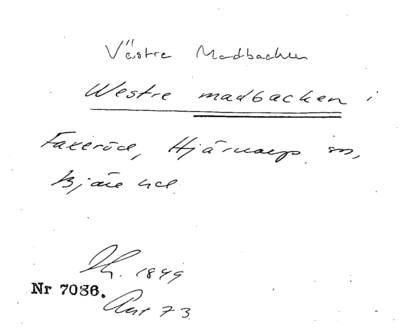 Västra Madbacken
Westre madbacken i
Faxeröd, Hjärnarps sn,
Bjäre hd.
1849
Nr 7086.
Avt 73